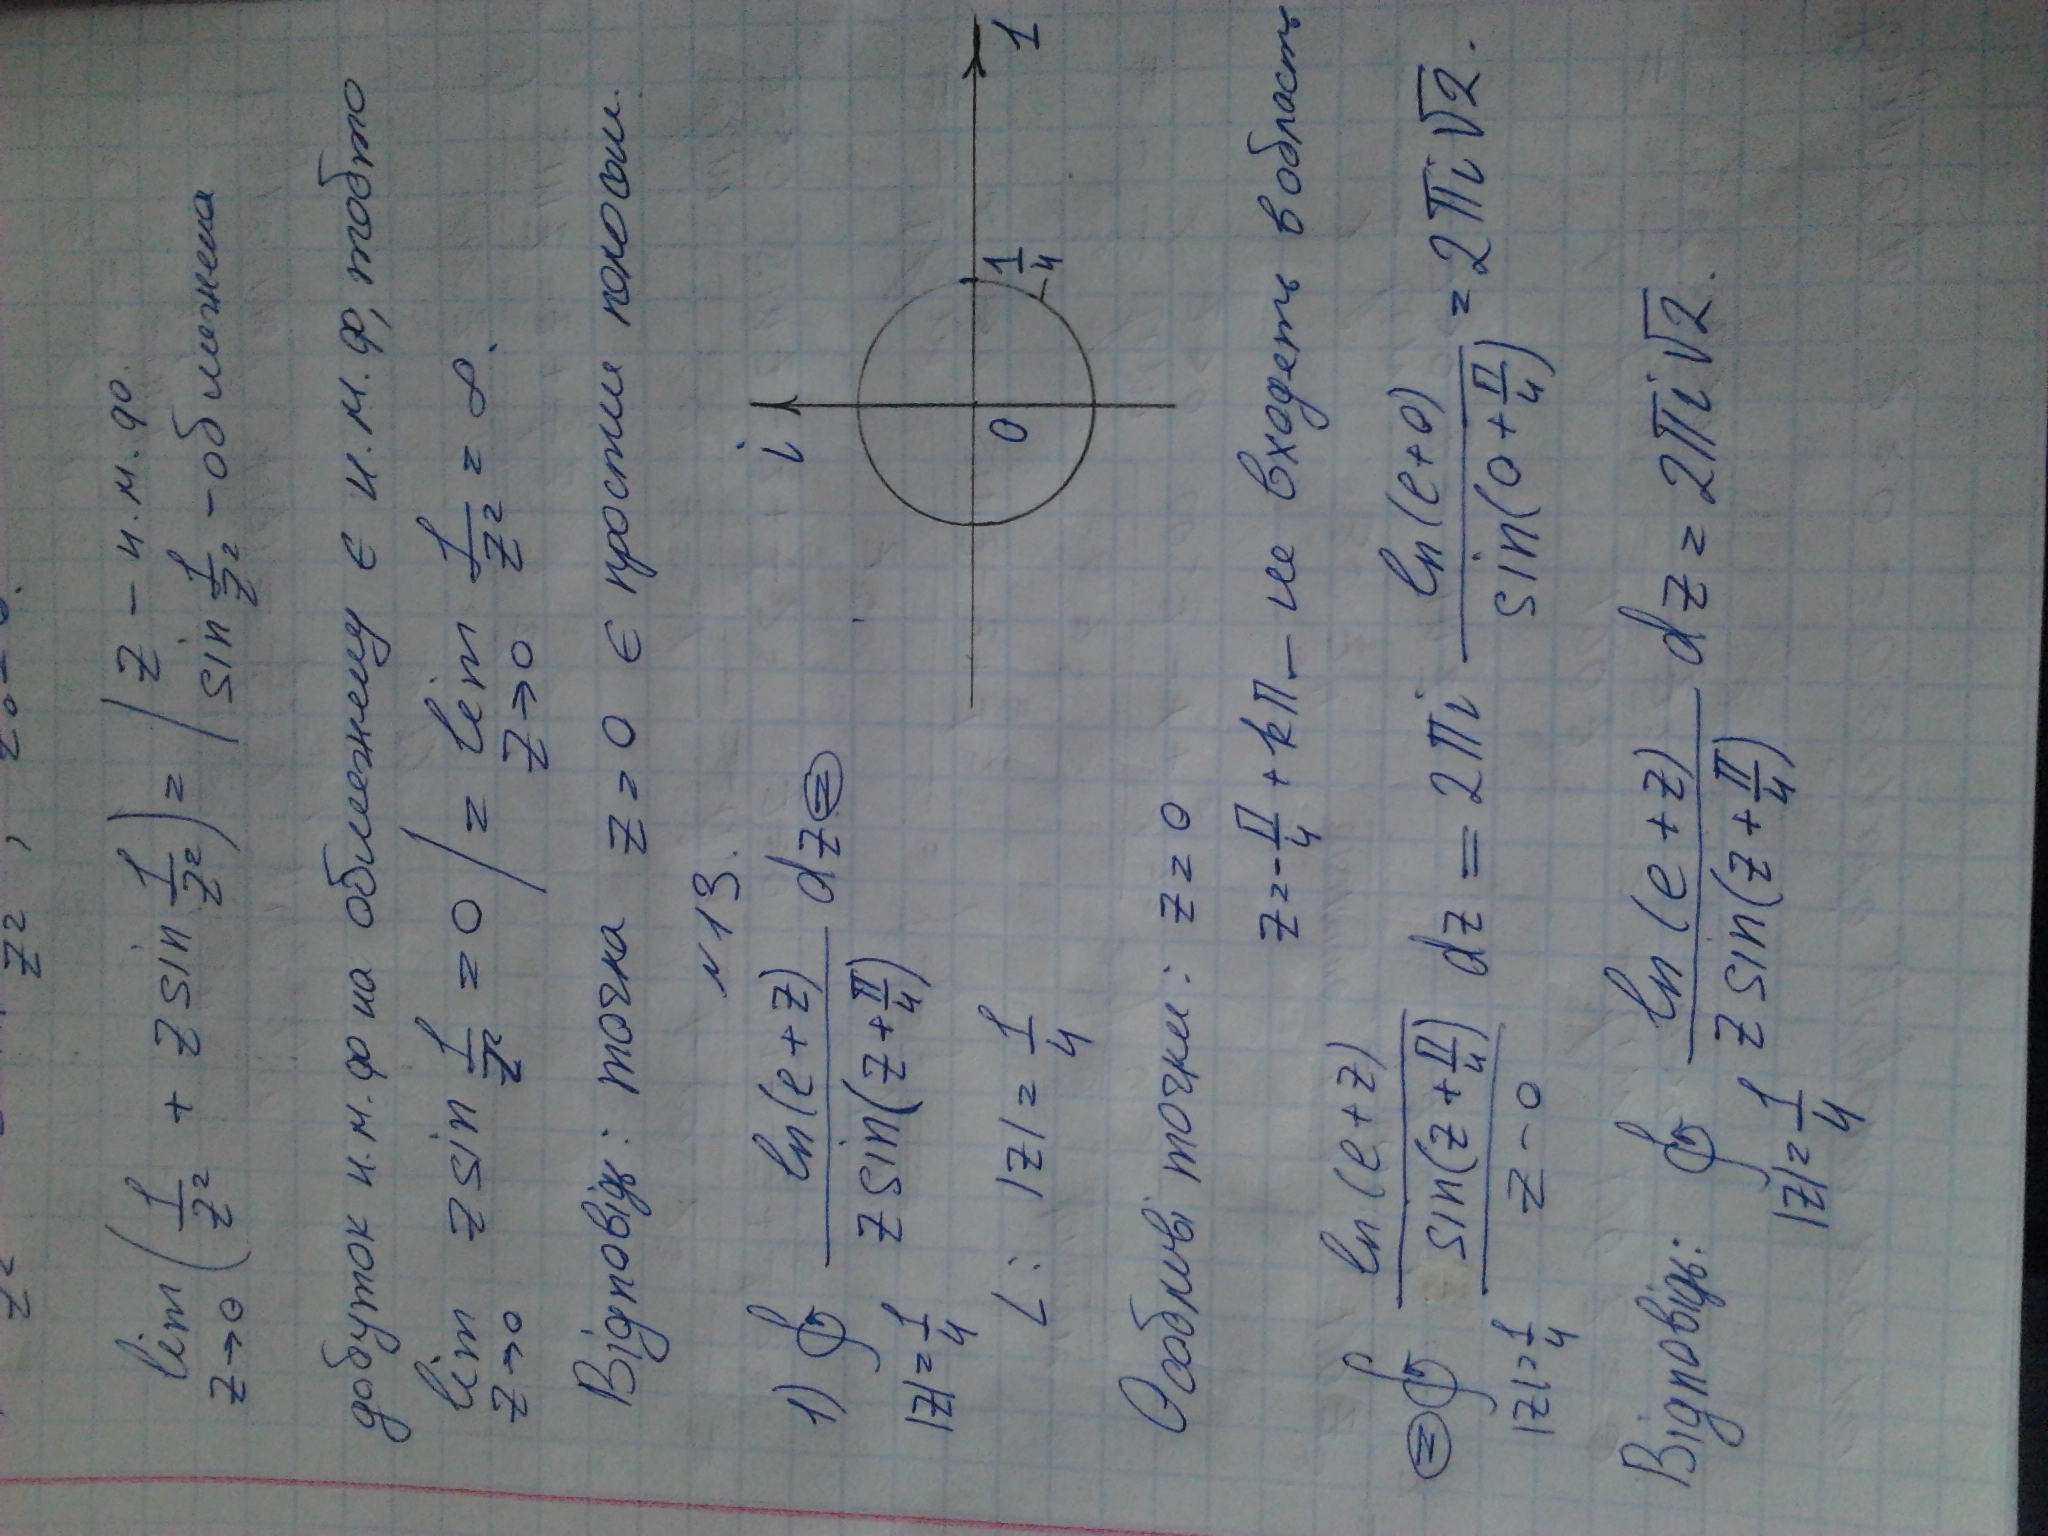 z² z² , z₀=0.
lim z→0 (1/z² + z sin 1/z²) = | z - н.м.ф.
sin 1/z² - обмежена
добуток н.м.ф на обмежену є н.м.ф, тобто
lim z→0 z sin 1/z² = 0 | = lim z→0 1/z² = ∞.
Відповідь: точка z = 0 є простим полюсом.
№13.
1) ∮ |z|=1/4 ln(e+z) / z sin(z+π/4) dz =
i
0 1/4 1
L: |z| = 1/4
Особливі точки: z = 0
z = -π/4 + kπ - не входять в область
= ∮ |z|=1/4 (ln(e+z) / sin(z+π/4)) / z-0 dz = 2πi ln(e+0) / sin(0+π/4) = 2πi√2.
Відповідь: ∮ |z|=1/4 ln(e+z) / z sin(z+π/4) dz = 2πi√2.